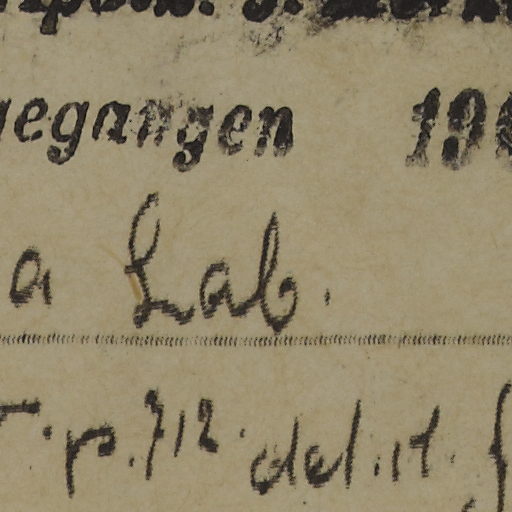 gegangen 19
a Lab.
p. 712. del. it.